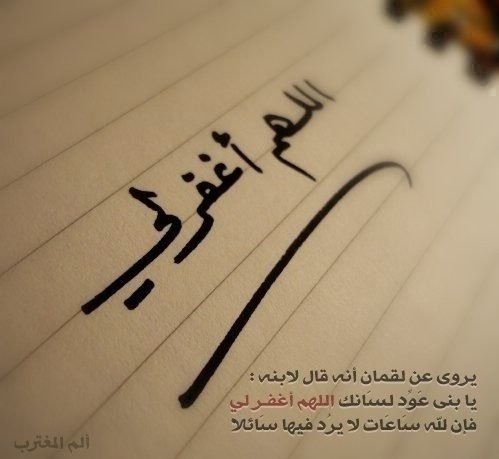 اللهم أغفر لي
يروى عن لقمان أنه قال لابنه :
يا بنى عَوّد لسانك اللهم أغفر لي
فإن لله ساعات لا يرُد فيها سائلا
ألم المغترب